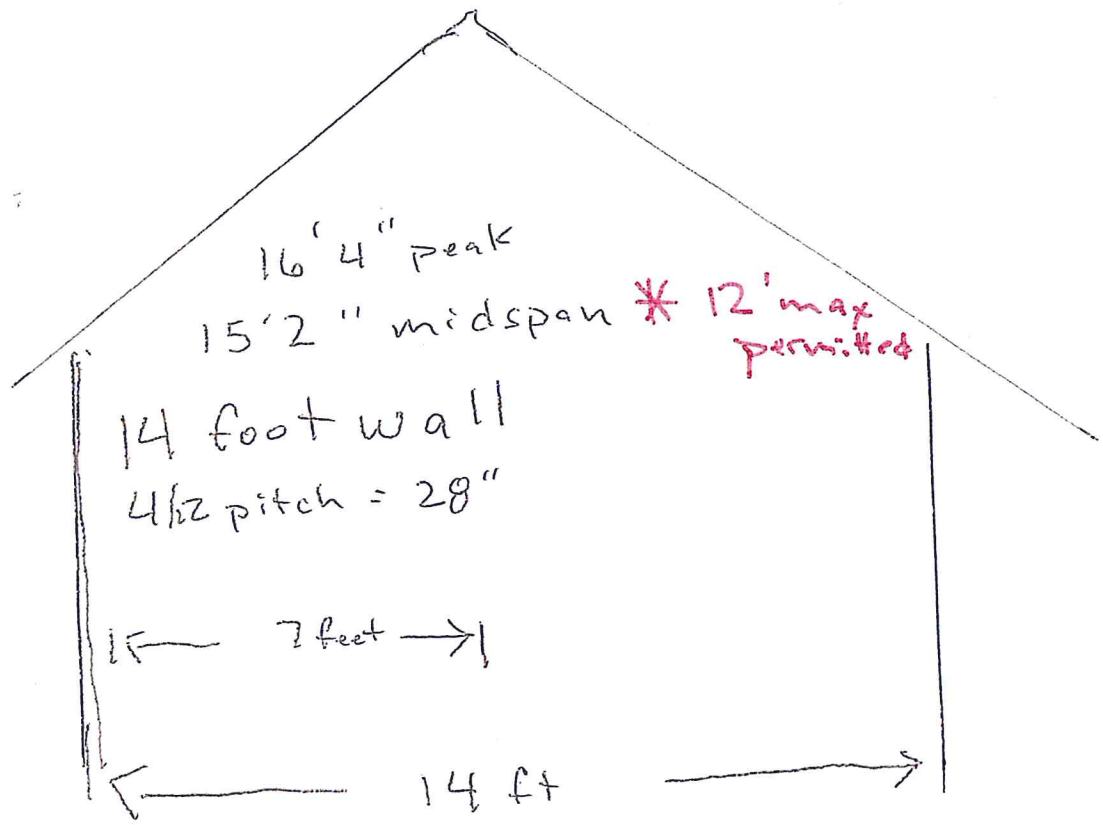 16'4" peak
15'2" midspan * 12' max
permitted
14 foot wall
4/12 pitch = 28"
7 feet
14 ft